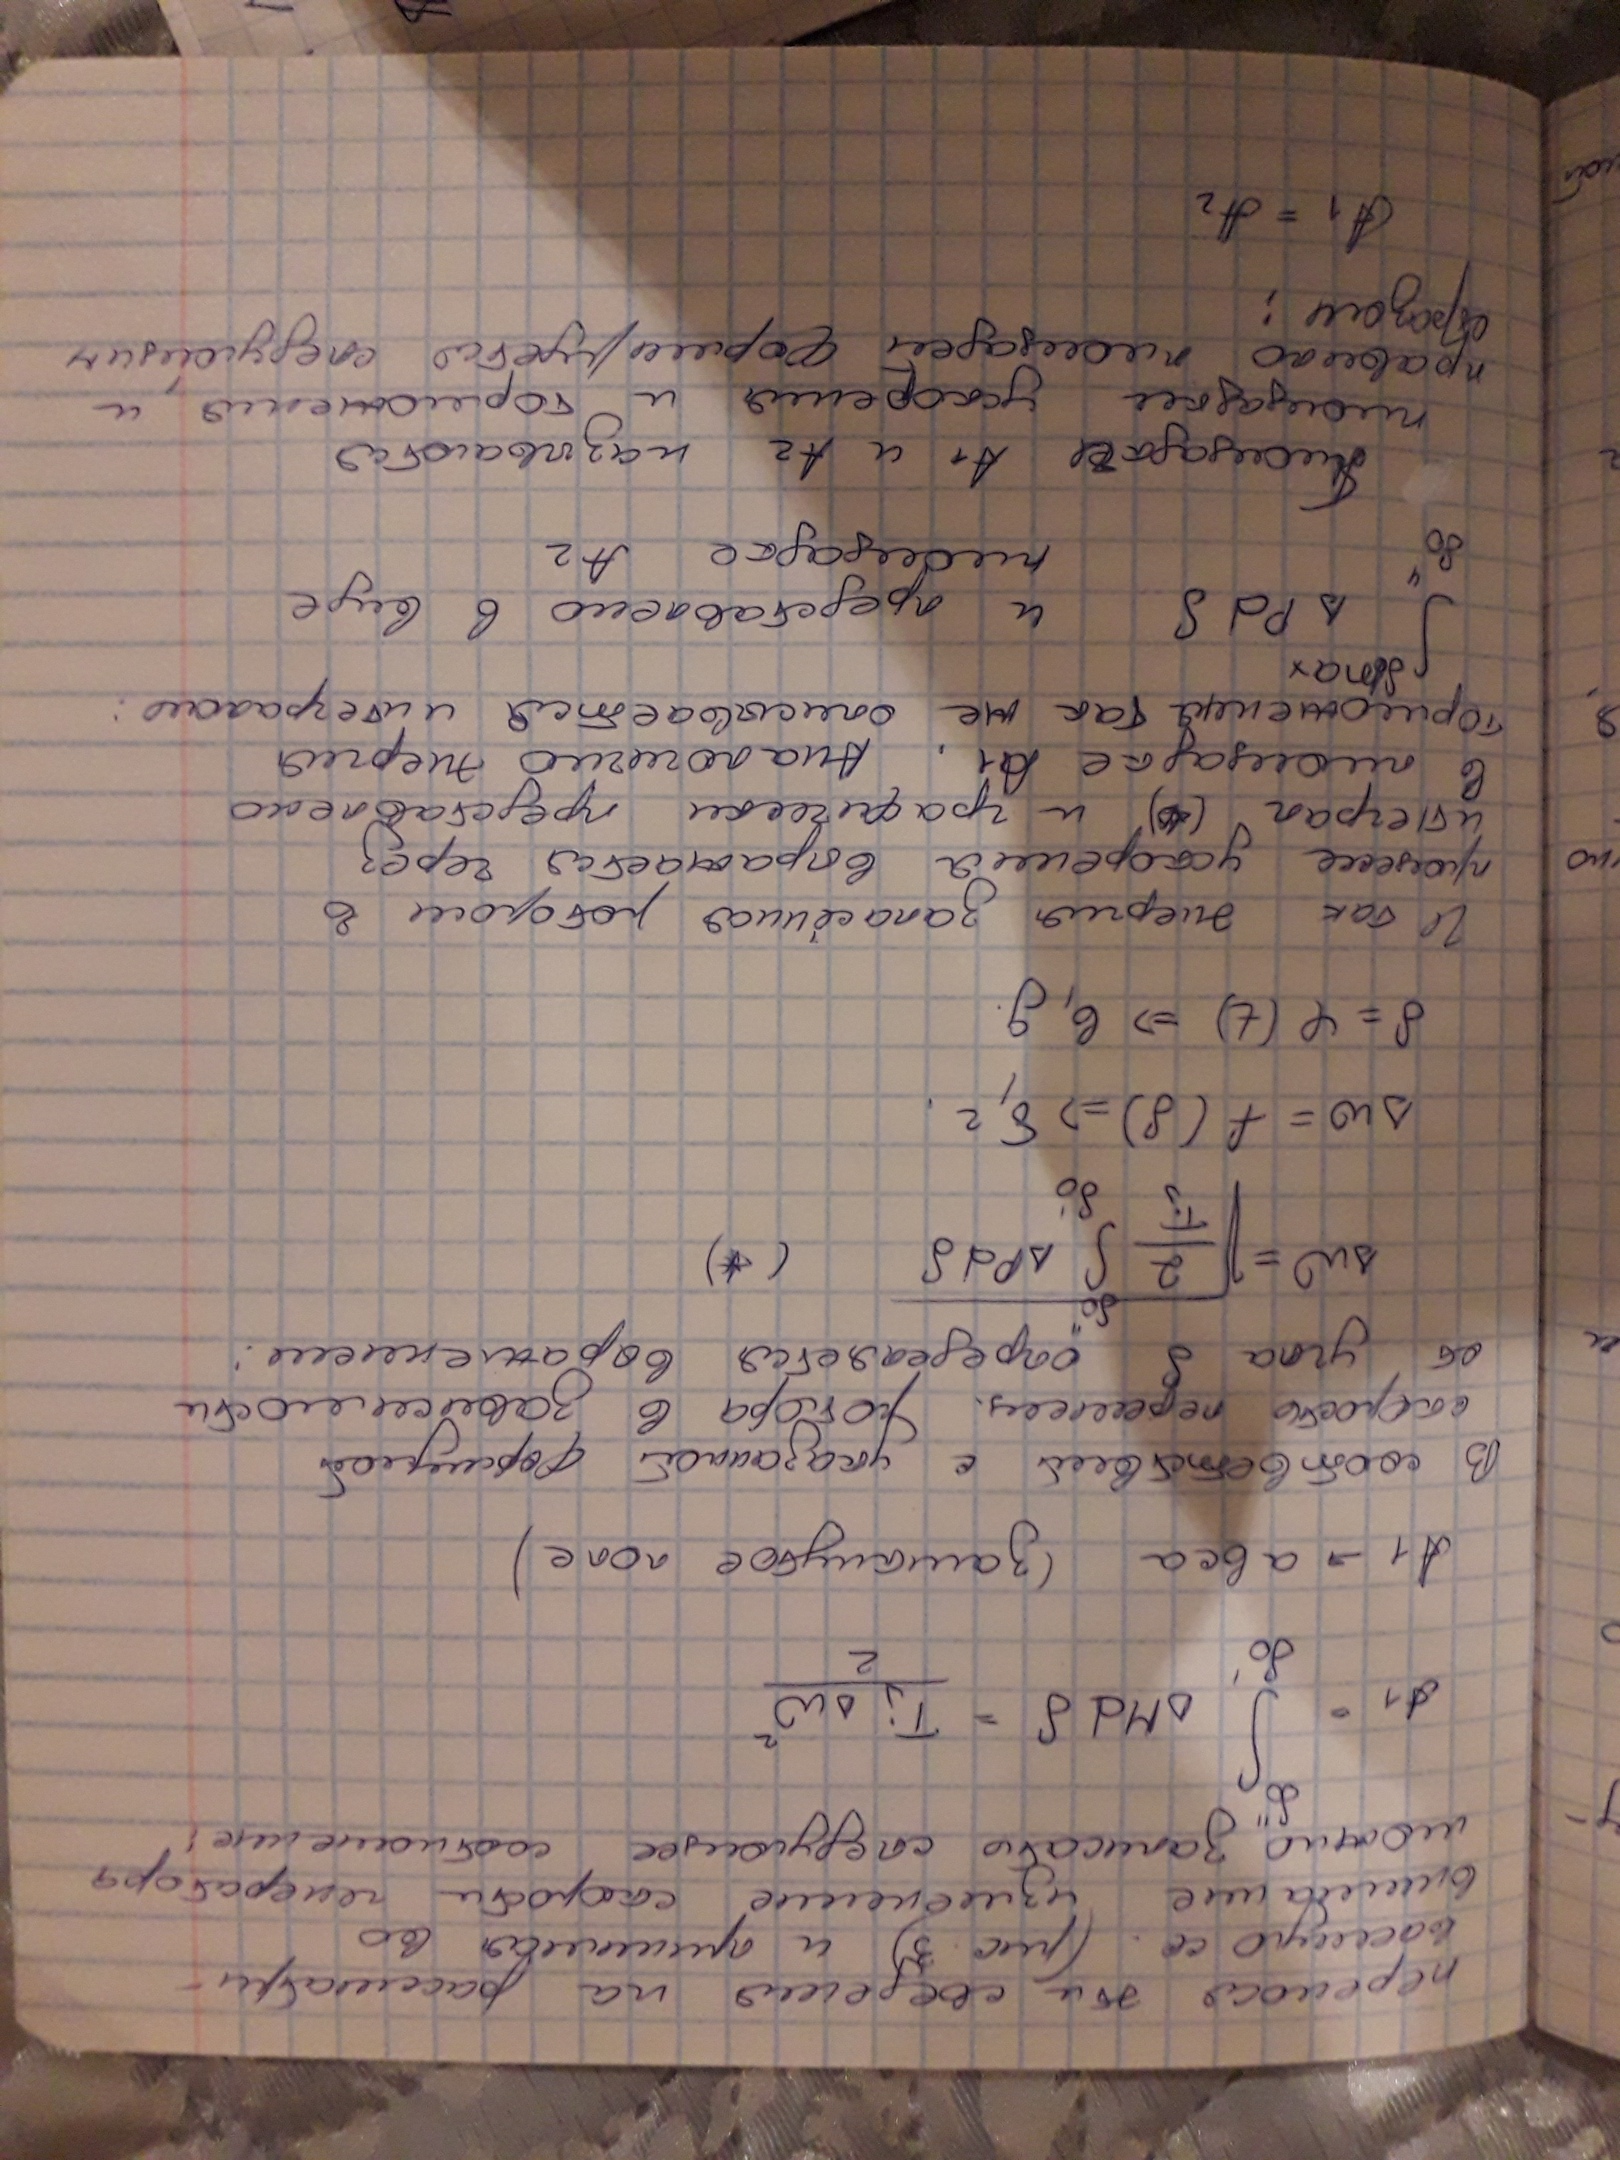 перенося эти сведения на рассматри-
ваемую сс. (рис. 3) и принимая во
внимание изменение скорости генератора
можно записать следующее соотношение:
A1 = ∫_{δ0'}^{δ0''} ΔMdδ = Tj Δω² / 2
A1 → авса (замкнутое поле)
В соответствий с указанной формулой
скорость перемещ. ротора в зависимости
от угла δ определяется выражением:
Δω = √(2/Tj ∫_{δ0'}^{δ0''} ΔPdδ) (*)
Δω = f(δ) => б, г.
δ = φ(t) => в, д.
И так энергия запасённая ротором в
процессе ускорения выражается через
интеграл (*) и графически представлено
в площадке A1. Аналогично энергия
торможения так же описывается интегралом:
∫_{δ0''}^{δmax} ΔPdδ и представлено в виде
площадке A2
Площадки A1 и A2 называются
площадки ускорения и торможения, и
правило площадей формируется следующим
образом:
A1 = A2